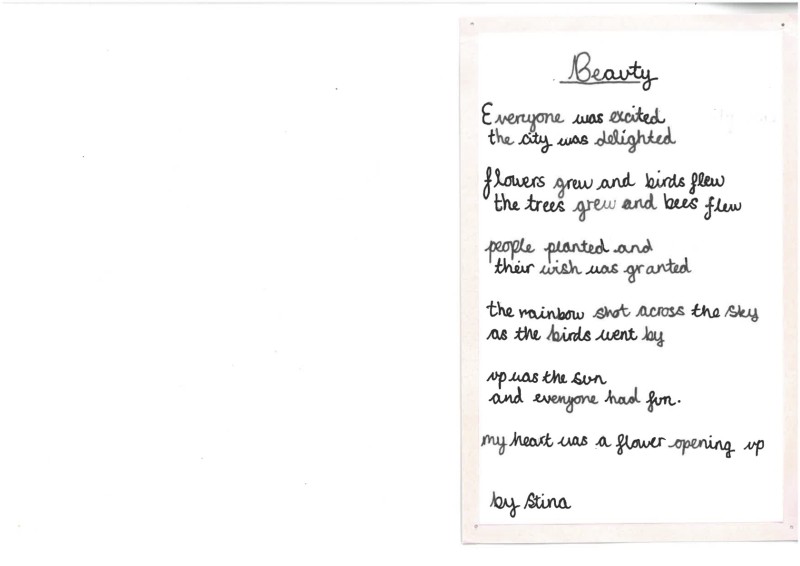 Beauty
Everyone was excited
the city was delighted
flowers grew and birds flew
the trees grew and bees flew
people planted and
their wish was granted
the rainbow shot across the sky
as the birds went by
up was the sun
and everyone had fun.
my heart was a flower opening up
by Stina